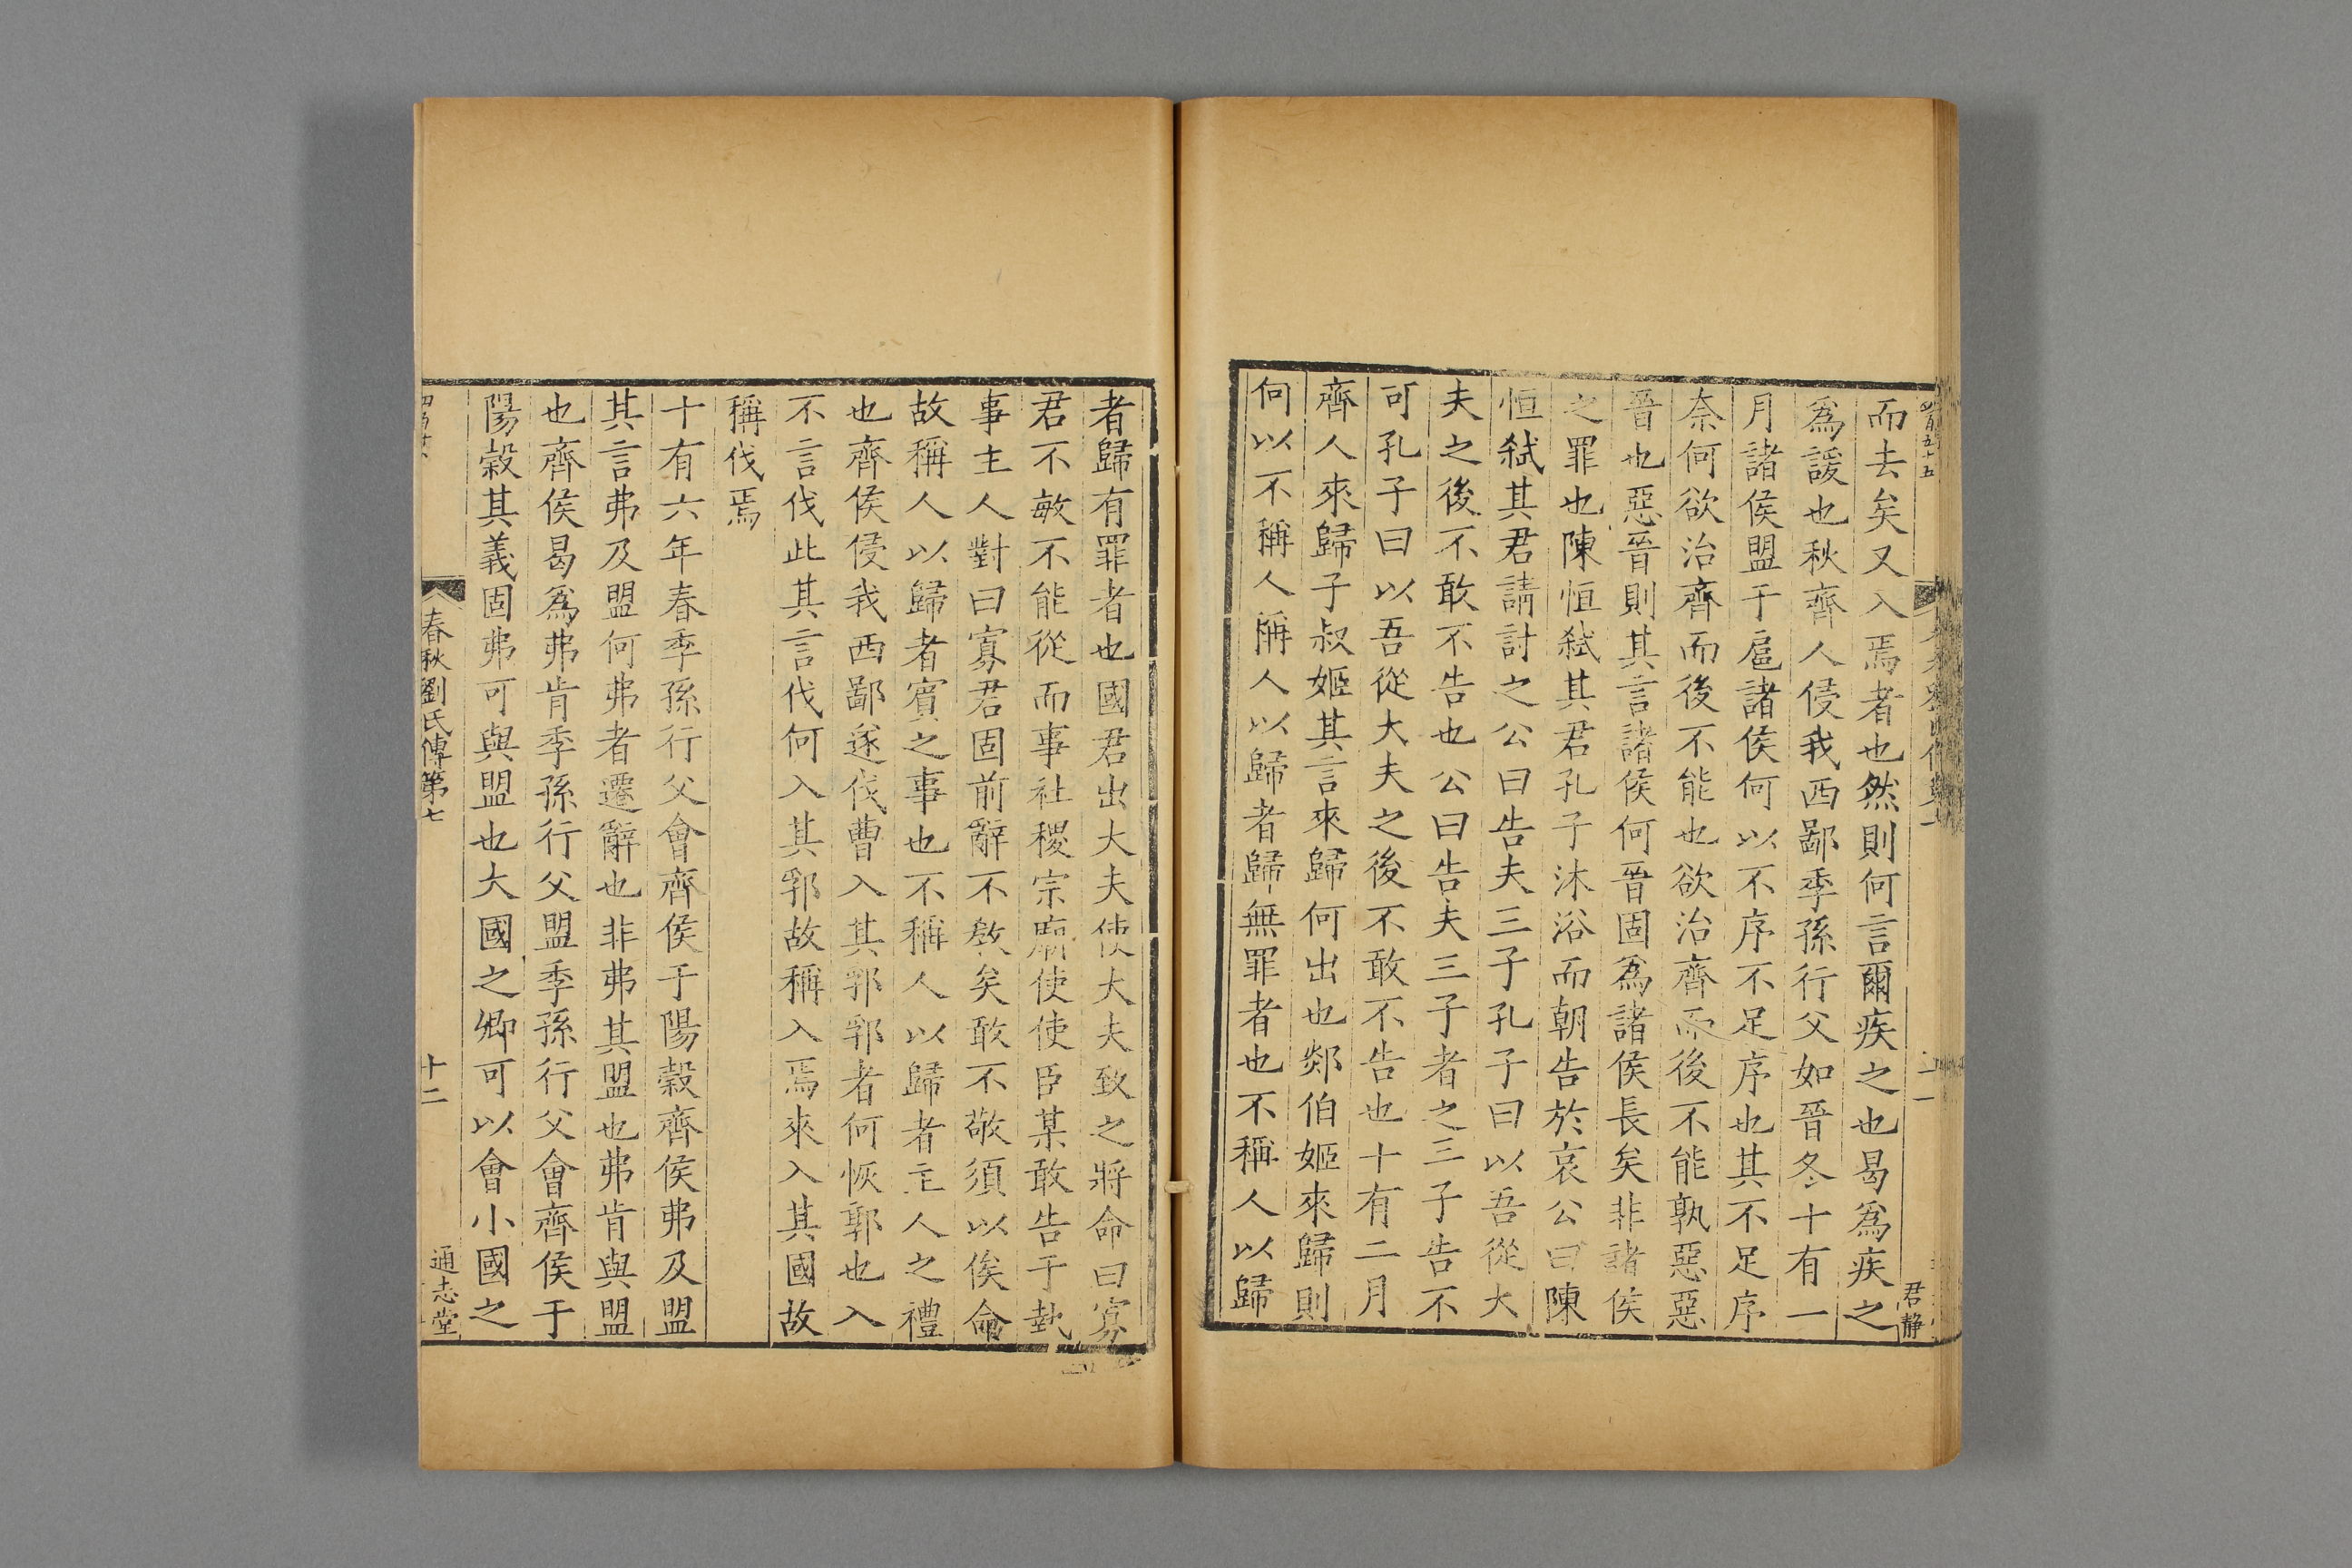 君静
而去矣又入焉者也然則何言爾疾之也曷為疾之
為諼也秋齊人侵我西鄙季孫行父如晉冬十有一
月諸侯盟于扈諸侯何以不序不足序也其不足序
奈何欲治齊而後不能也欲治齊而後不能孰惡惡
晉也惡晉則其言諸侯何晉固為諸侯長矣非諸侯
之罪也陳恒弑其君孔子沐浴而朝告於哀公曰陳
恒弑其君請討之公曰告夫三子孔子曰以吾從大
夫之後不敢不告也公曰告夫三子者之三子告不
可孔子曰以吾從大夫之後不敢不告也十有二月
齊人來歸子叔姬其言來歸何出也郯伯姬來歸則
何以不稱人稱人以歸者歸無罪者也不稱人以歸
者歸有罪者也國君出大夫使大夫致之將命曰寡
君不敏不能從而事社稷宗廟使使臣某敢告于執
事主人對曰寡君固前辭不敎矣敢不敬須以俟命
故稱人以歸者賓之事也不稱人以歸者主人之禮
也齊侯侵我西鄙遂伐曹入其郛郛者何恢郭也入
不言伐此其言伐何入其郛故稱入焉來入其國故
稱伐焉
十有六年春季孫行父會齊侯于陽穀齊侯弗及盟
其言弗及盟何弗者遷辭也非弗其盟也弗肯與盟
也齊侯曷為弗肯季孫行父盟季孫行父會齊侯于
陽穀其義固弗可與盟也大國之卿可以會小國之
春秋劉氏傳第七
十二
通志堂